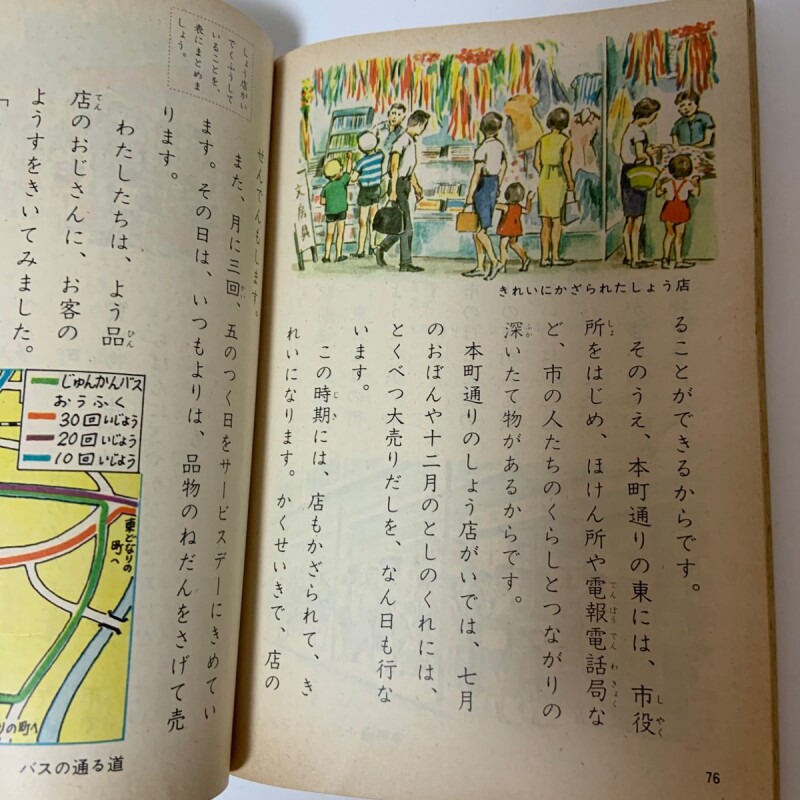 文房具
きれいにかざられたしょう店
ることができるからです。
そのうえ、本町通りの東には、市役
しやく
所をはじめ、ほけん所や電報電話局な
しょ
でんぽうでんわきょく
ど、市の人たちのくらしとつながりの
深いたて物があるからです。
ふか
本町通りのしょう店がいでは、七月
のおぼんや十二月のとしのくれには、
とくべつ大売りだしを、なん日も行な
います。
この時期には、店もかざられて、き
じき
れいになります。かくせいきで、店の
76
せんでんもします。
また、月に三回、五のつく日をサービスデーにきめてい
かい
ます。その日は、いつもよりは、品物のねだんをさげて売
ります。
しょう店がい
でくふうして
いることを、
表にまとめま
しょう。
わたしたちは、よう品
ひん
店のおじさんに、お客の
てん
ようすをきいてみました。
「
じゅんかんバス
おうふく
30回いじょう
20回いじょう
10回いじょう
東どなりの
町へ
りの町へ
バスの通る道